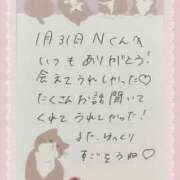 1月31日 Nくんへ
いつもありがとう!
会えてうれしかった♡
たくさんお話聞いて
くれてうれしかった!
また、ゆっくり
すごそうね♡